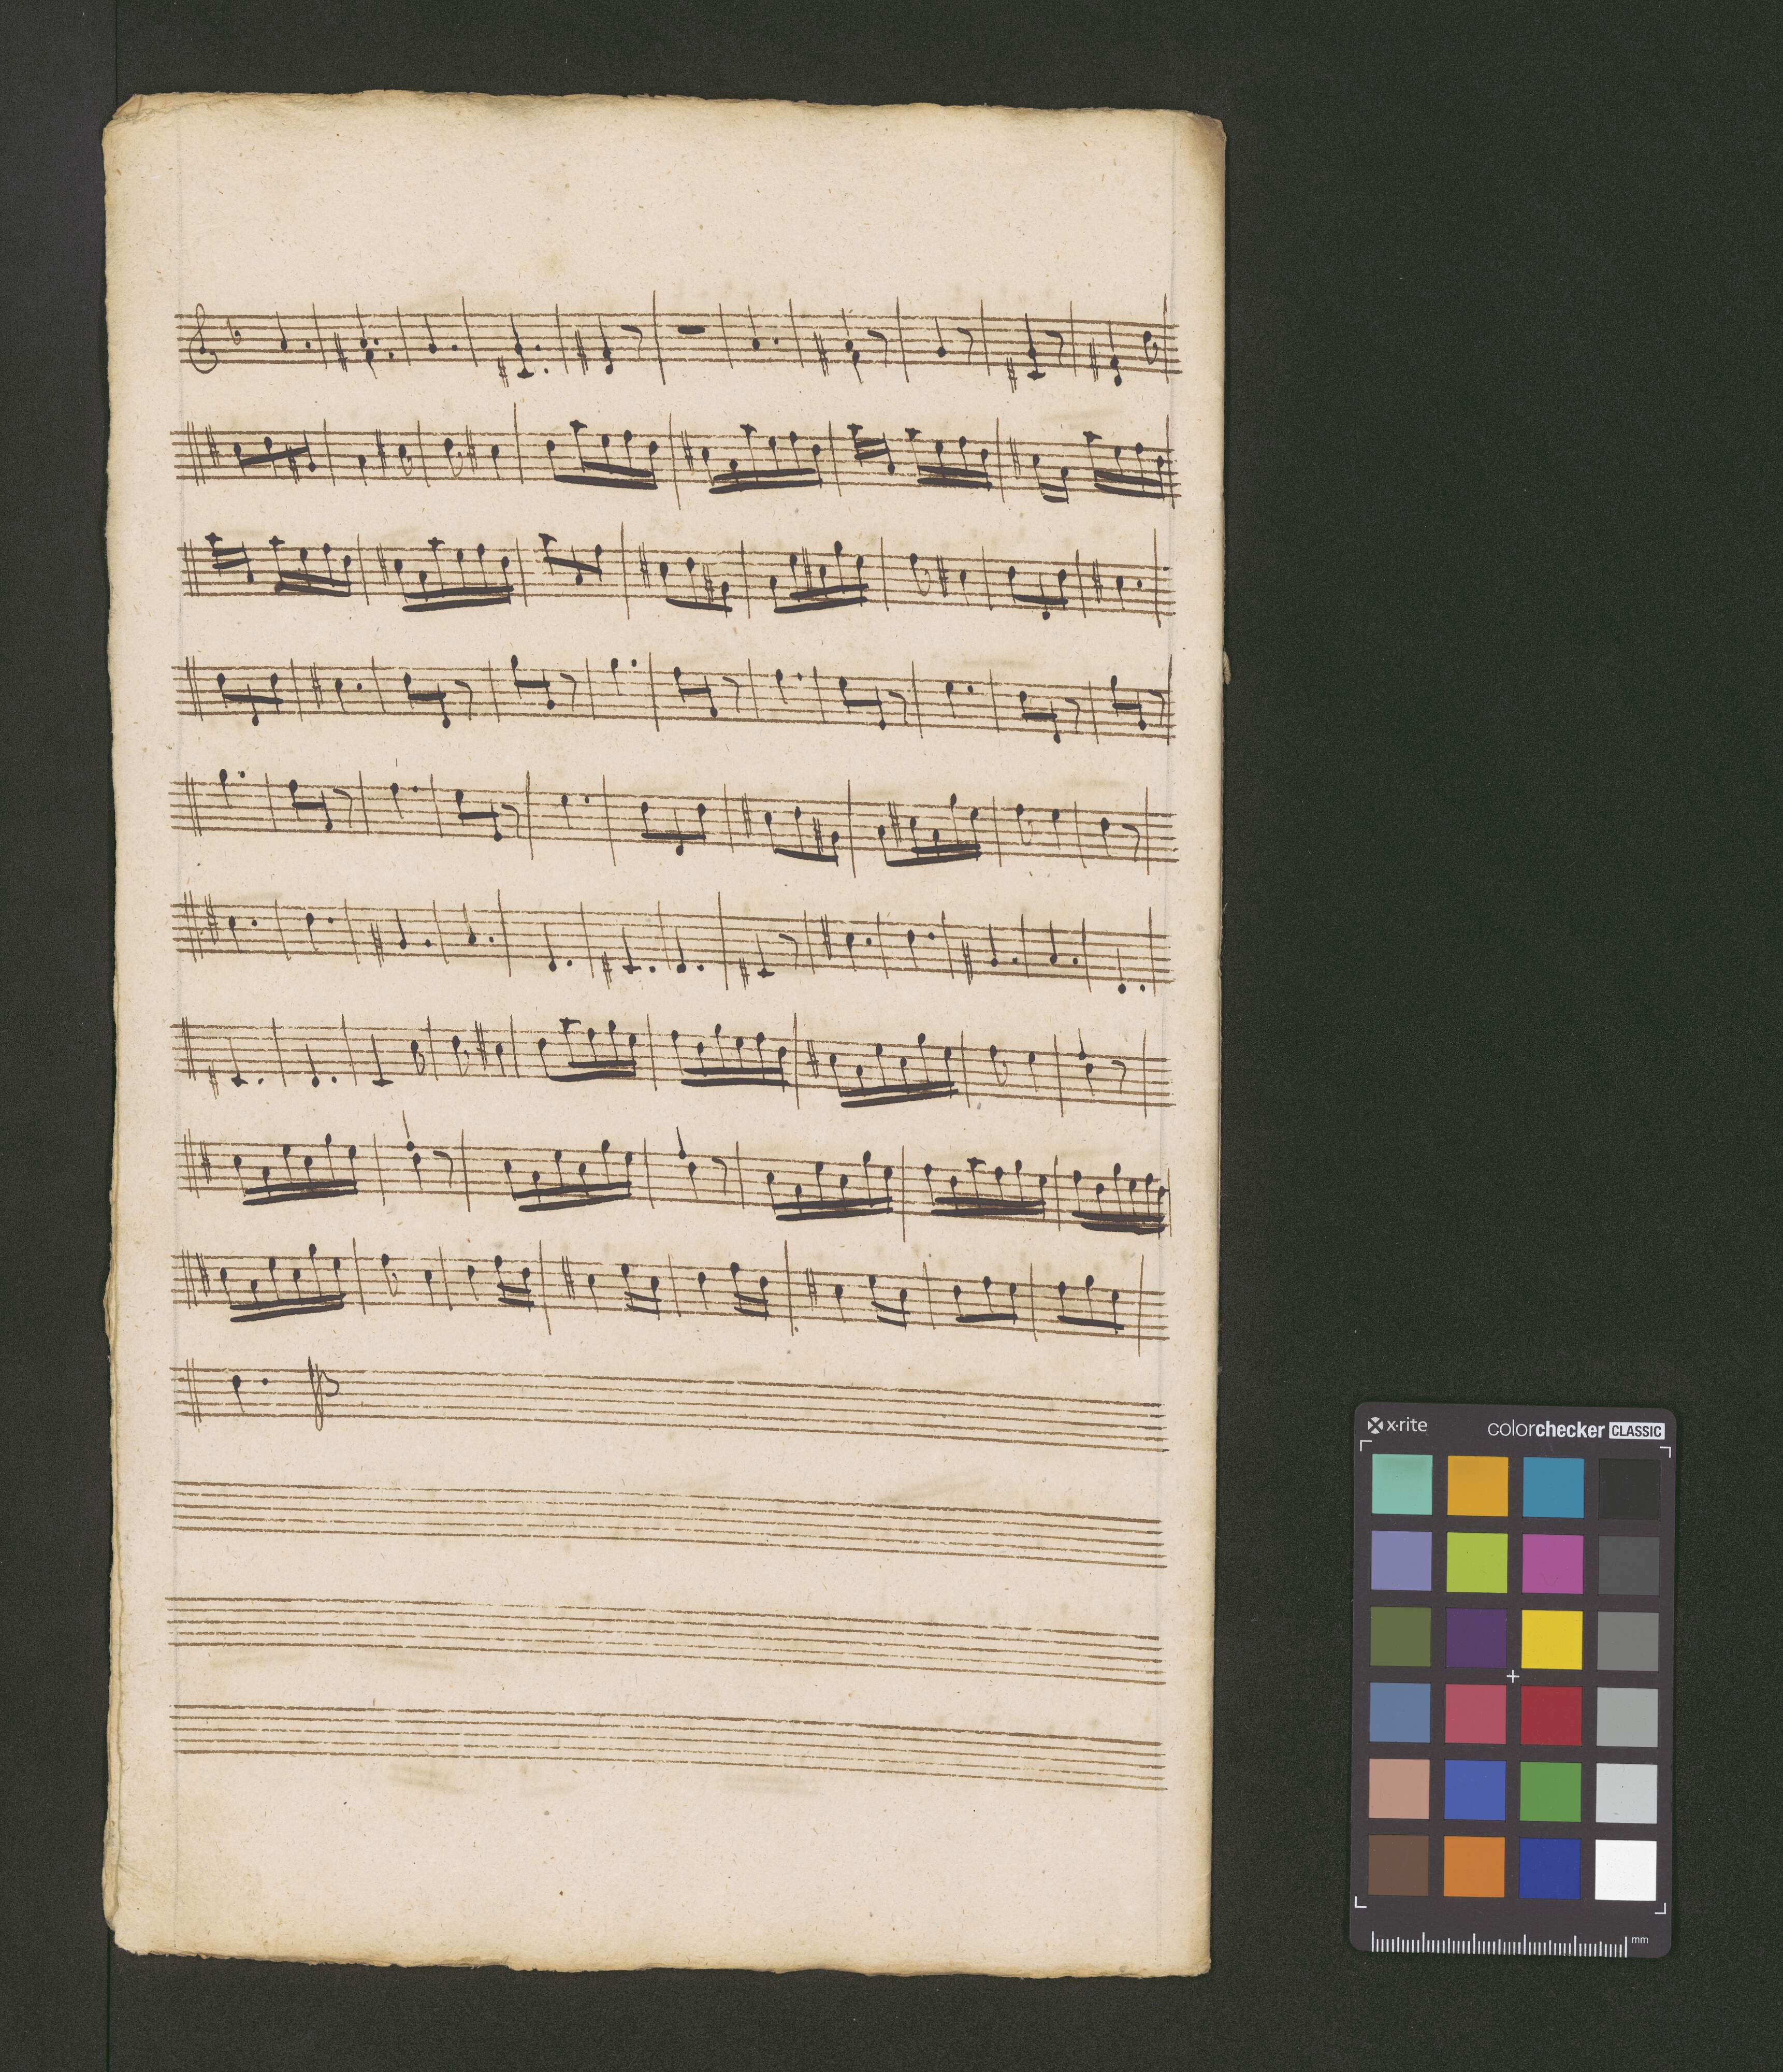 x-rite
colorchecker CLASSIC
mm